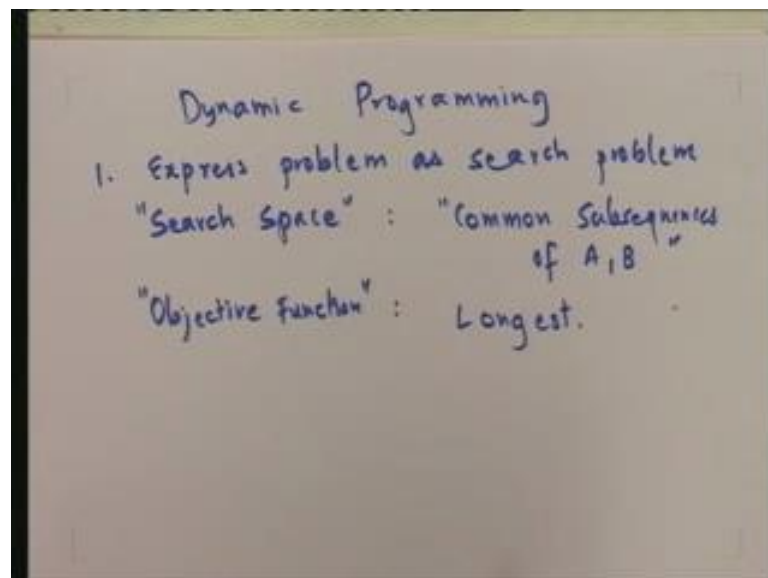 Dynamic Programming
1. Express problem as search problem
"Search Space" : "Common Subsequences
of A, B"
"Objective Function" : Longest.